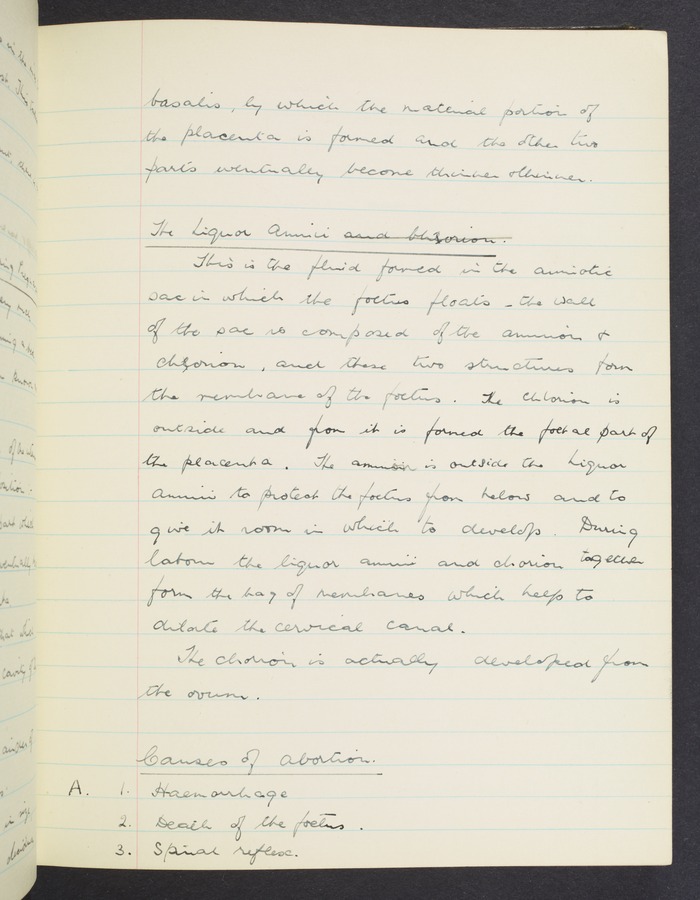 basalis, by which the material portion of
the placenta is formed and the other two
parts eventually become thinner & thinner.
The Liquor Amnii and Chorion.
This is the fluid formed in the amniotic
sac in which the foetus floats - the wall
of the sac is composed of the amnion &
chorion, and these two structures form
the membrane of the foetus. The chorion is
outside and from it is formed the foetal part of
the placenta. The amnion is outside the liquor
amnii to protect the foetus from below and to
give it room in which to develop. During
labour the liquor amnii and chorion together
form the bag of membranes which helps to
dilate the cervical canal.
The chorion is actually developed from
the ovum.
Causes of abortion.
A. 1. Haemorrhage
2. Death of the foetus.
3. Spinal reflex.